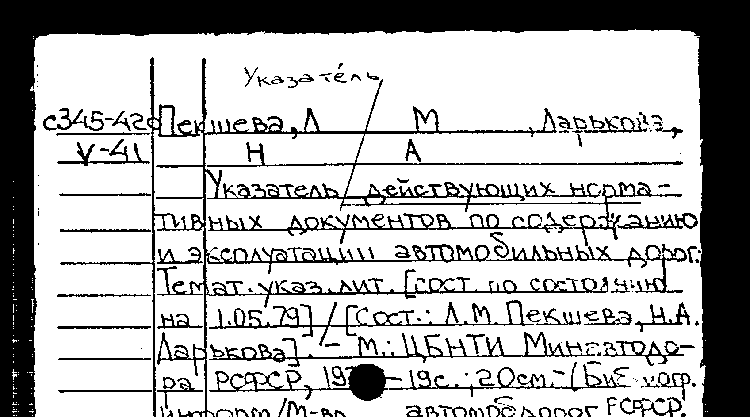 Указатель
с345-42 Пекшева, Л М , Ларькова,
V-41 Н А
Указатель действующих норма-
тивных документов по содержанию
и эксплуатации автомобильных дорог.
Темат. указ. лит. [сост. по состоянию
на 1.05.79] / [Сост.: Л.М. Пекшева, Н.А.
Ларькова]. – М.: ЦБНТИ Минавтодо-
ра РСФСР, – 19с.; 20см. – (Биб
информ / М-во автомоб дорог РСФСР.